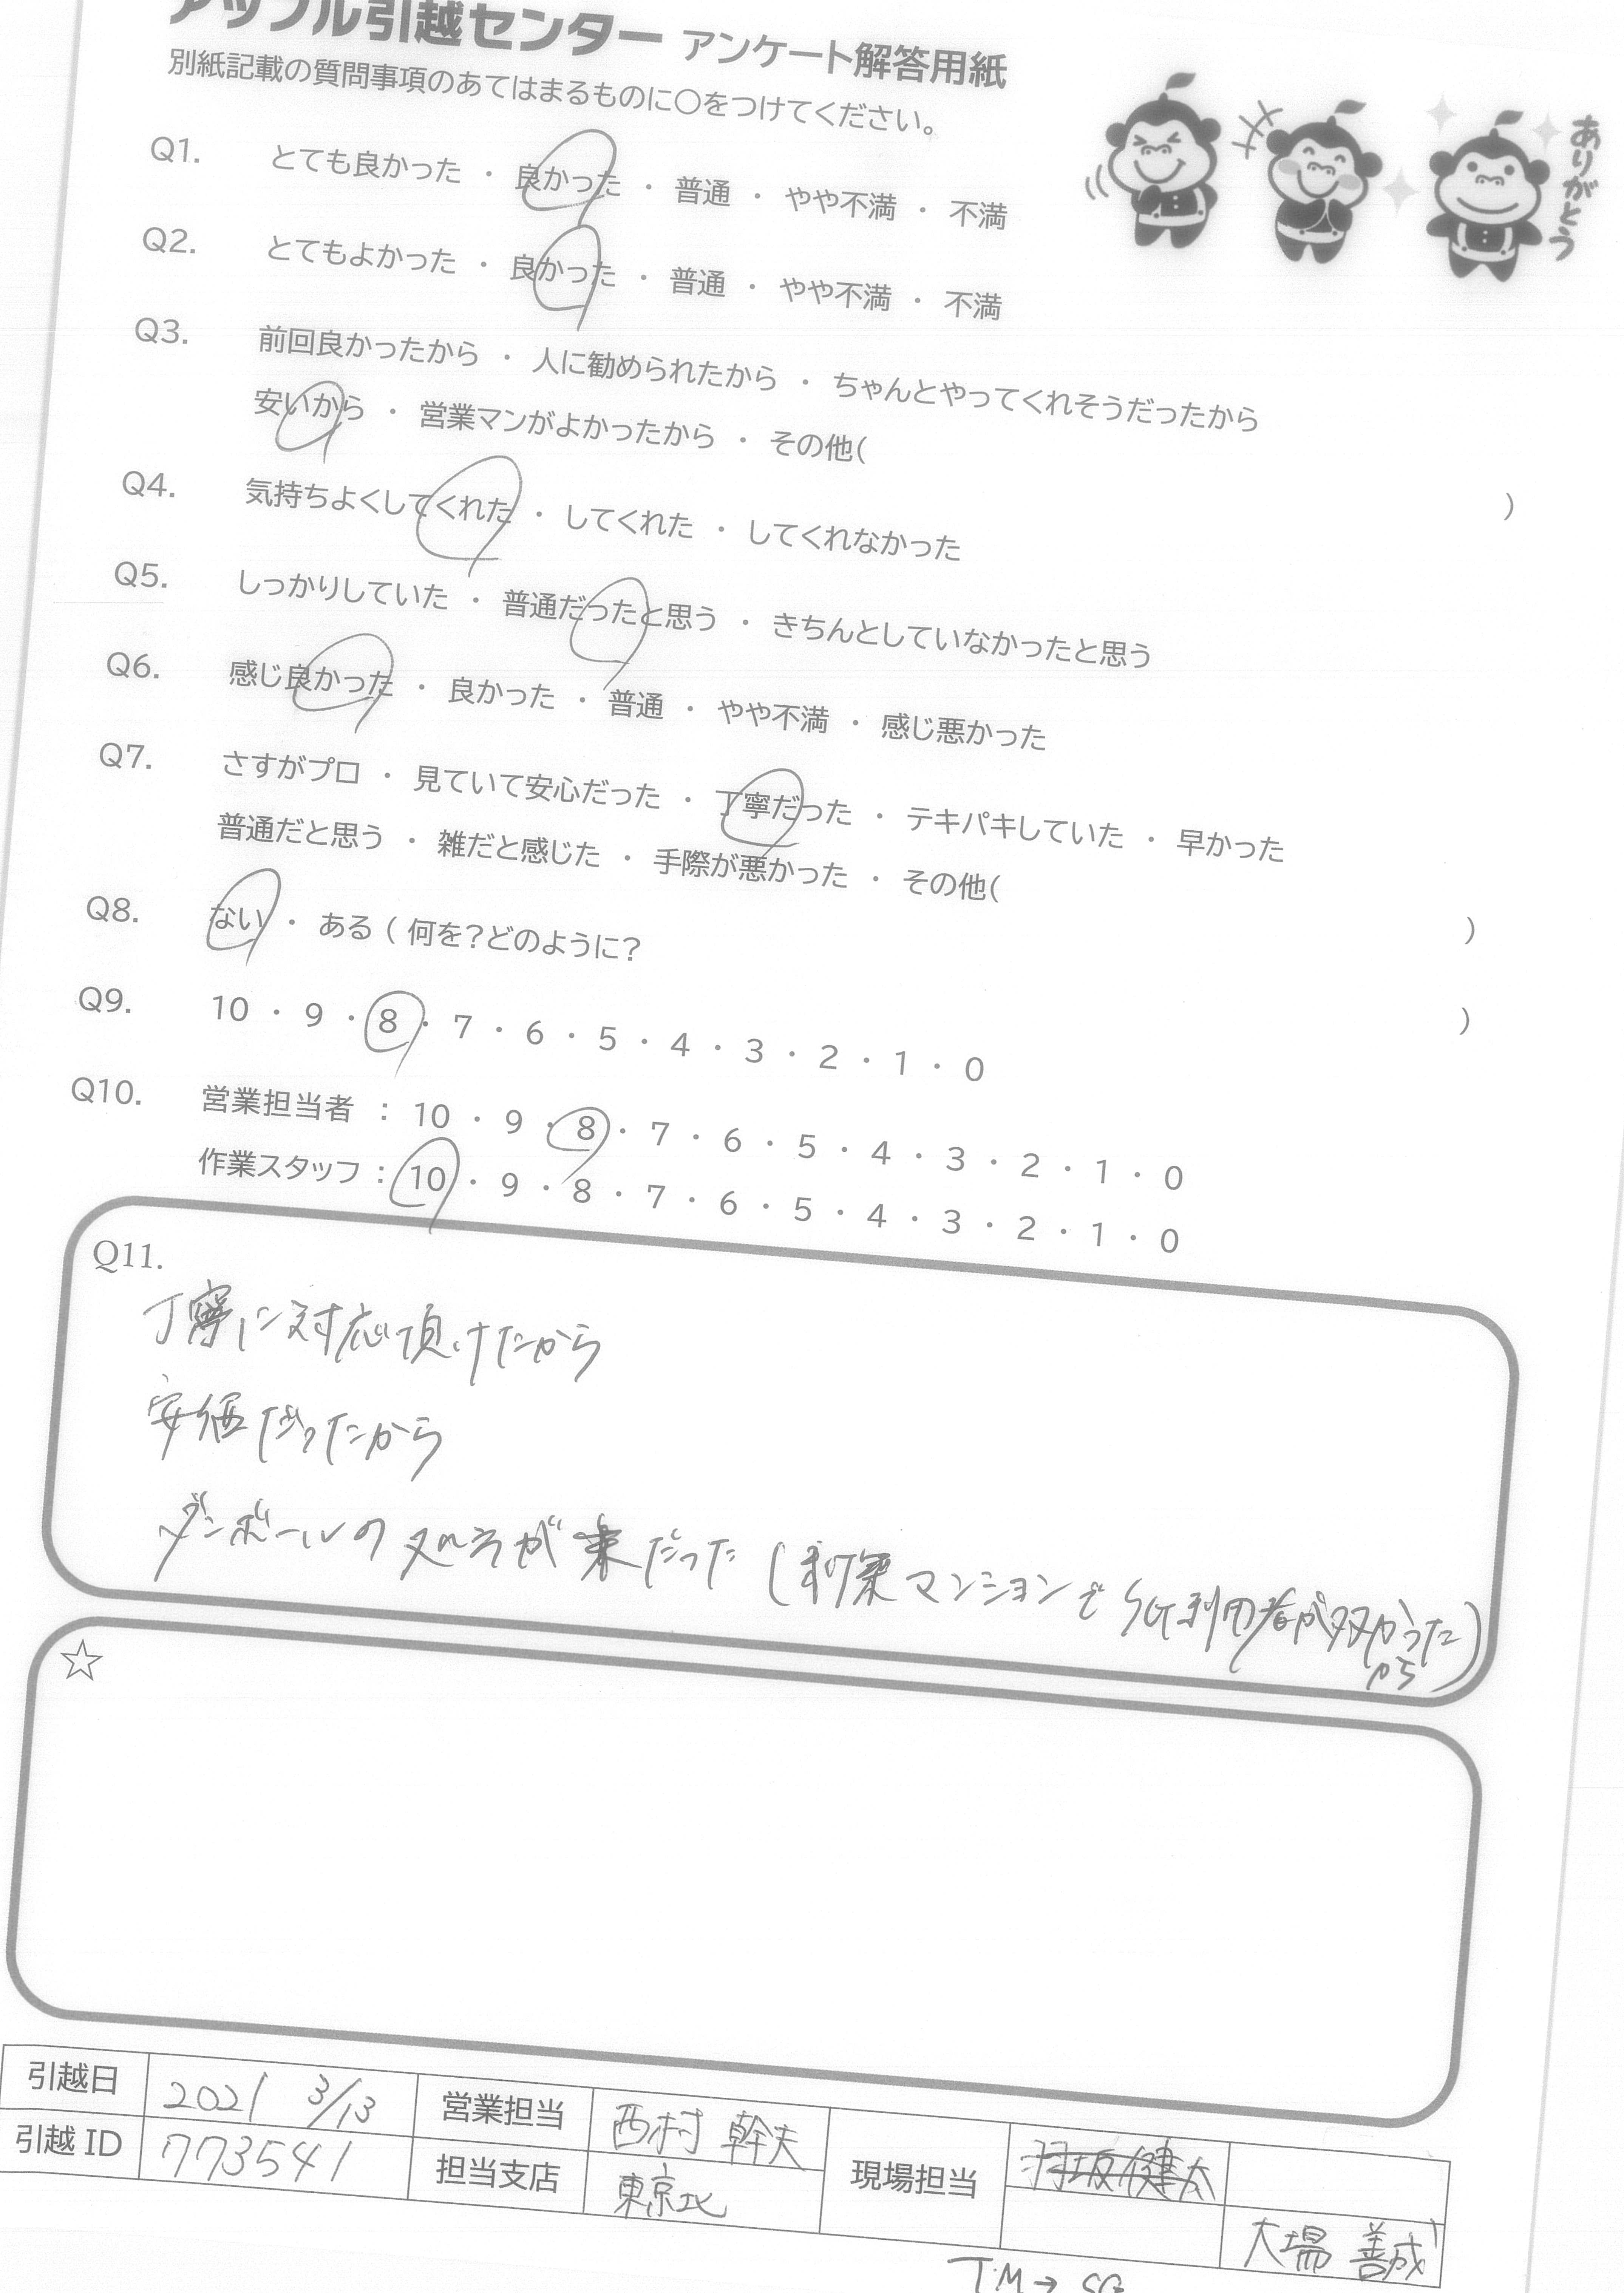 アップル引越センター アンケート解答用紙
別紙記載の質問事項のあてはまるものに○をつけてください。
ありがとう
Q1. とても良かった ・ 良かった ・ 普通 ・ やや不満 ・ 不満
Q2. とてもよかった ・ 良かった ・ 普通 ・ やや不満 ・ 不満
Q3. 前回良かったから ・ 人に勧められたから ・ ちゃんとやってくれそうだったから
安いから ・ 営業マンがよかったから ・ その他( )
Q4. 気持ちよくしてくれた ・ してくれた ・ してくれなかった
Q5. しっかりしていた ・ 普通だったと思う ・ きちんとしていなかったと思う
Q6. 感じ良かった ・ 良かった ・ 普通 ・ やや不満 ・ 感じ悪かった
Q7. さすがプロ ・ 見ていて安心だった ・ 丁寧だった ・ テキパキしていた ・ 早かった
普通だと思う ・ 雑だと感じた ・ 手際が悪かった ・ その他( )
Q8. ない ・ ある ( 何を?どのように? )
Q9. 10 ・ 9 ・ 8 ・ 7 ・ 6 ・ 5 ・ 4 ・ 3 ・ 2 ・ 1 ・ 0
Q10. 営業担当者 : 10 ・ 9 ・ 8 ・ 7 ・ 6 ・ 5 ・ 4 ・ 3 ・ 2 ・ 1 ・ 0
作業スタッフ : 10 ・ 9 ・ 8 ・ 7 ・ 6 ・ 5 ・ 4 ・ 3 ・ 2 ・ 1 ・ 0
Q11.
丁寧に対応頂けたから
安価だったから
ダンボールの が だった (新築マンションで 利用者が多かった
から)
☆
引越日 2021 3/13 営業担当 西村 幹夫 現場担当 健太
引越 ID 773541 担当支店 東京北 大場 善成
TM→SG